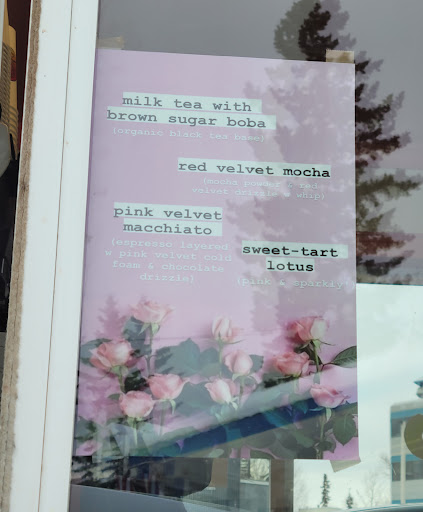 milk tea with
brown sugar boba
(organic black tea base)
red velvet mocha
(mocha powder & red
velvet drizzle & whip)
pink velvet
macchiato
(espresso layered
w pink velvet cold
foam & chocolate
drizzle)
sweet-tart
lotus
(pink & sparkly)